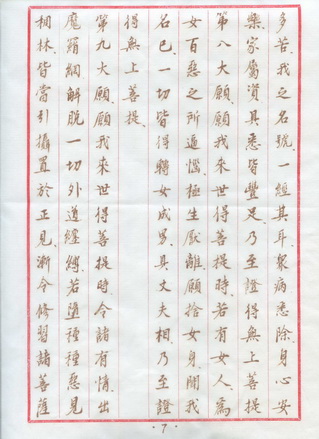 多苦我之名號一經其耳眾病悉除身心安
樂家屬資具悉皆豐足乃至證得無上菩提
第八大願願我來世得菩提時若有女人為
女百惡之所逼惱極生厭離願捨女身聞我
名已一切皆得轉女成男具丈夫相乃至證
得無上菩提
第九大願願我來世得菩提時令諸有情出
魔羂網解脫一切外道纏縛若墮種種惡見
稠林皆當引攝置於正見漸令修習諸菩薩
7